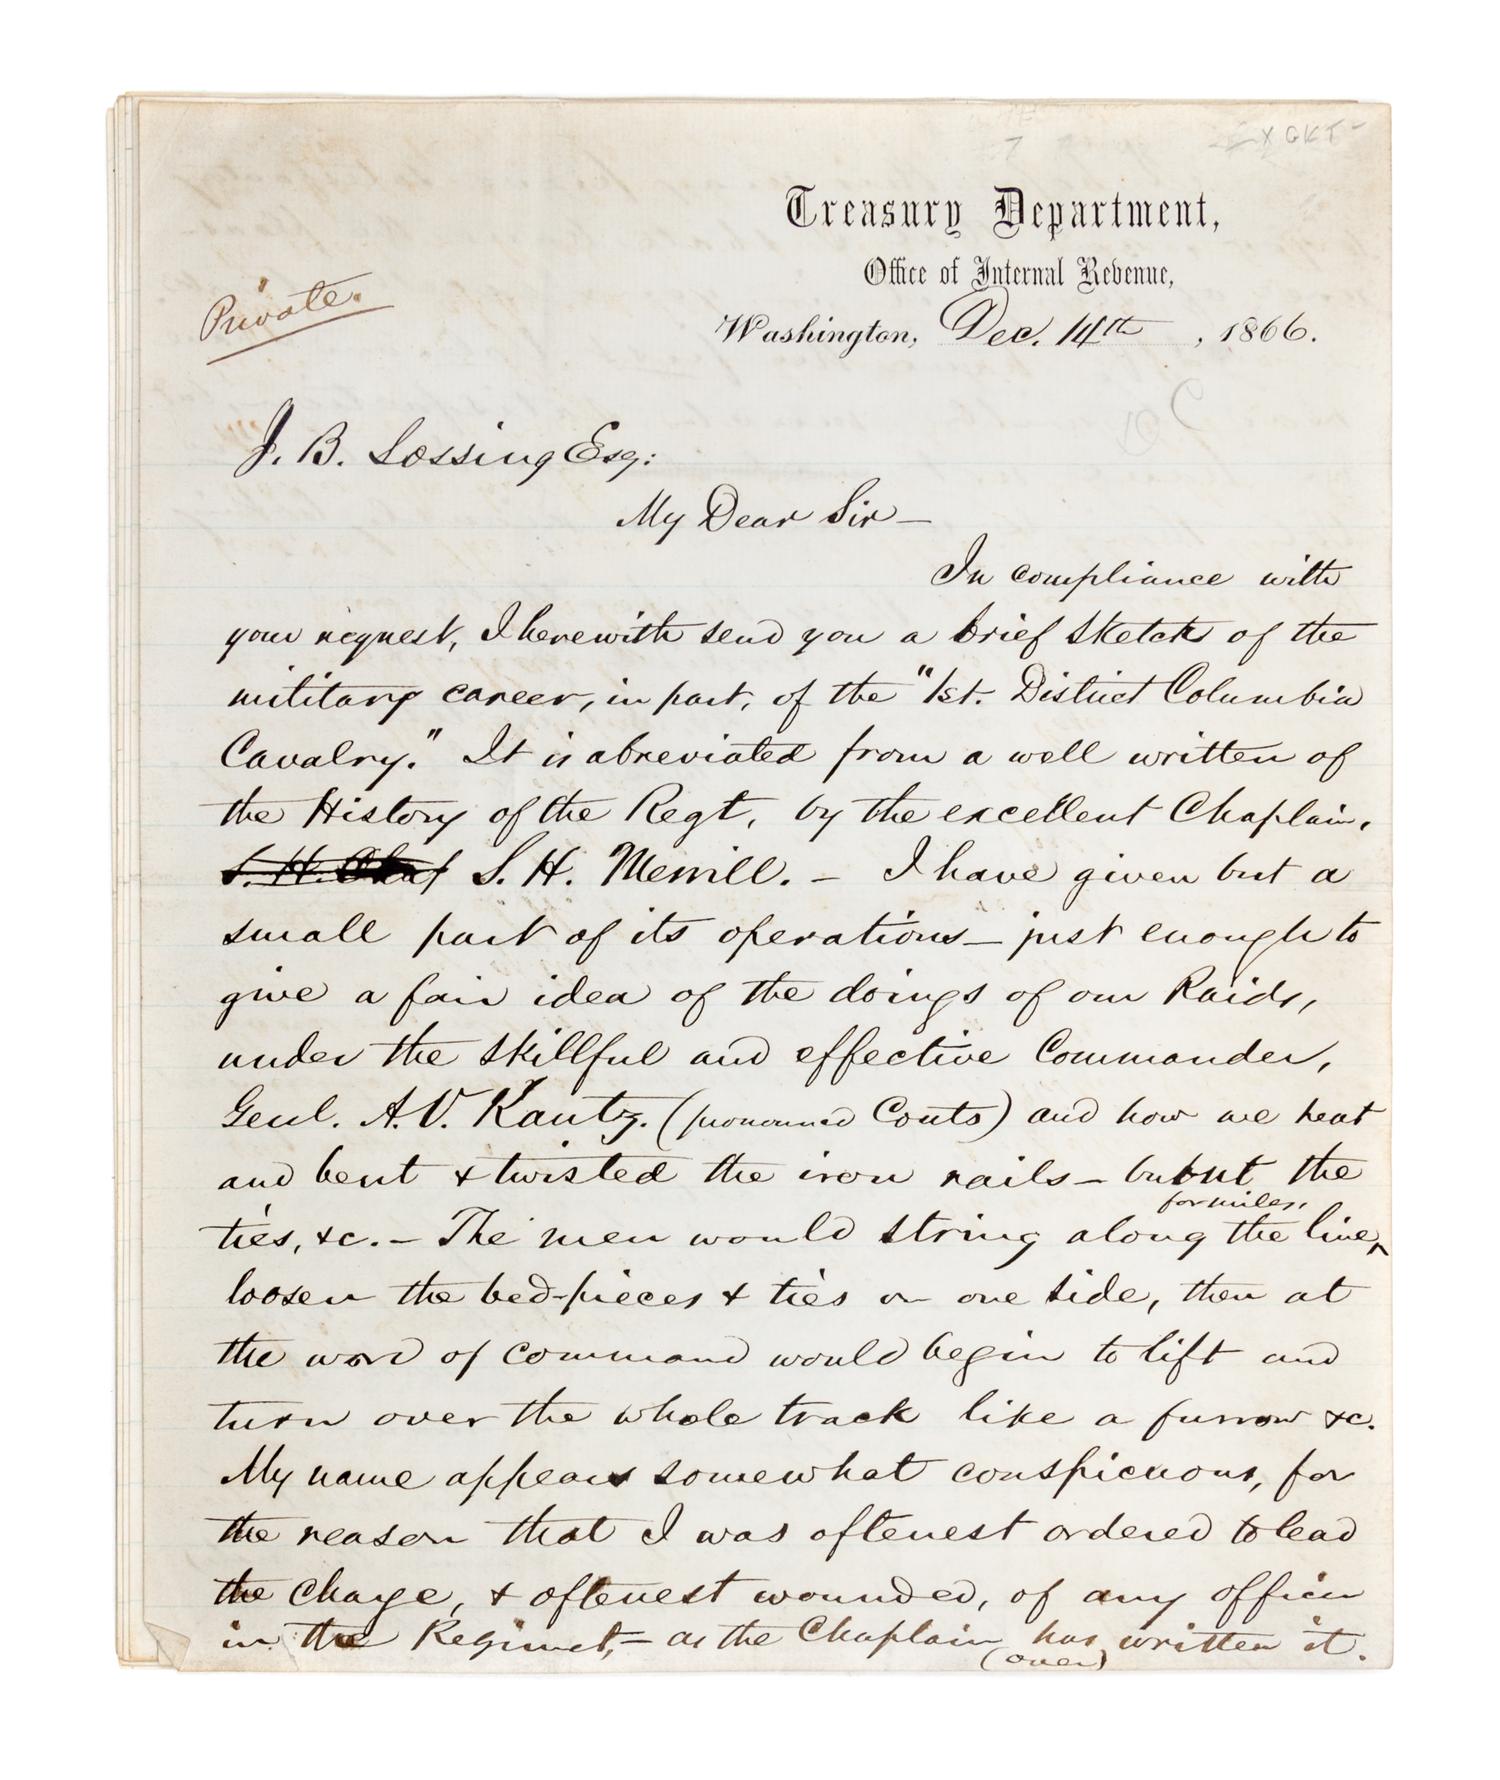 Treasury Department,
Office of Internal Revenue,
Private.
Washington, Dec. 14th, 1866.
J. B. Lossing Esq:
My Dear Sir—
In compliance with
your request, I herewith send you a brief sketch of the
military career, in part, of the "1st. District Columbia
Cavalry." It is abreviated from a well written of
the History of the Regt, by the excellent Chaplain,
S. H. Merrill. — I have given but a
small part of its operations — just enough to
give a fair idea of the doings of our Raids,
under the skillful and effective Commander,
Genl. A. V. Kautz. (pronounced Couts) and how we heat
and bent & twisted the iron rails — burnt the
ties, &c. — The men would string along the line, for miles,
loosen the bed-pieces & ties on one side, then at
the word of command would begin to lift and
turn over the whole track like a furrow &c.
My name appears somewhat conspicuous, for
the reason that I was oftenest ordered to lead
the charge, & oftenest wounded, of any officer
in the Regiment, — as the Chaplain has written it.
(over)